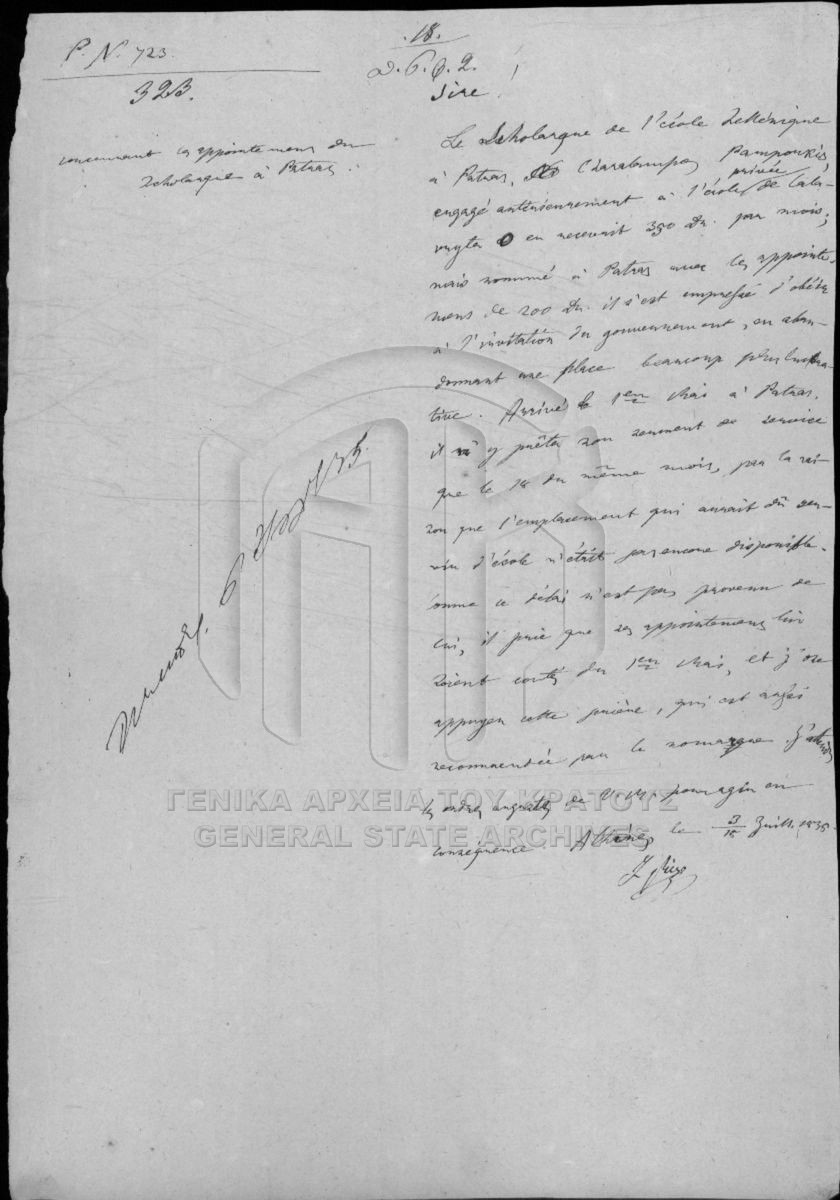 P. N. 723.
323.
18.
Sire
concernant les appointemens du
Scholarque à Patras.
Le Scholarque de l'école Hellénique
à Patras, Charalampes Pampoukis,
engagé antérieurement à l'école privée de Cala-
vryta en recevait 350 Dr. par mois;
mais nommé à Patras avec les appointe-
mens de 200 Dr. il s'est empressé d'obéir
à l'invitation du gouvernement, en aban-
donnant une place beaucoup plus lucra-
tive. Arrivé le 1er Mai à Patras,
il n'y prêta son serment de service
que le 18 du même mois, par la rai-
son que l'emplacement qui aurait dû ser-
vir d'école n'était pas encore disponible.
Comme ce délai n'est pas provenu de
lui, il prie que ses appointemens lui
soient comtés du 1er Mai, et j'ose
appuyer cette prière, qui est aussi
recommendée par le nomarque. J'attends
les ordres augustes de V. M. pour agir en
conséquence Athènes le 3/15 Juill. 1835
ΓΕΝΙΚΑ ΑΡΧΕΙΑ ΤΟΥ ΚΡΑΤΟΥΣ
GENERAL STATE ARCHIVES